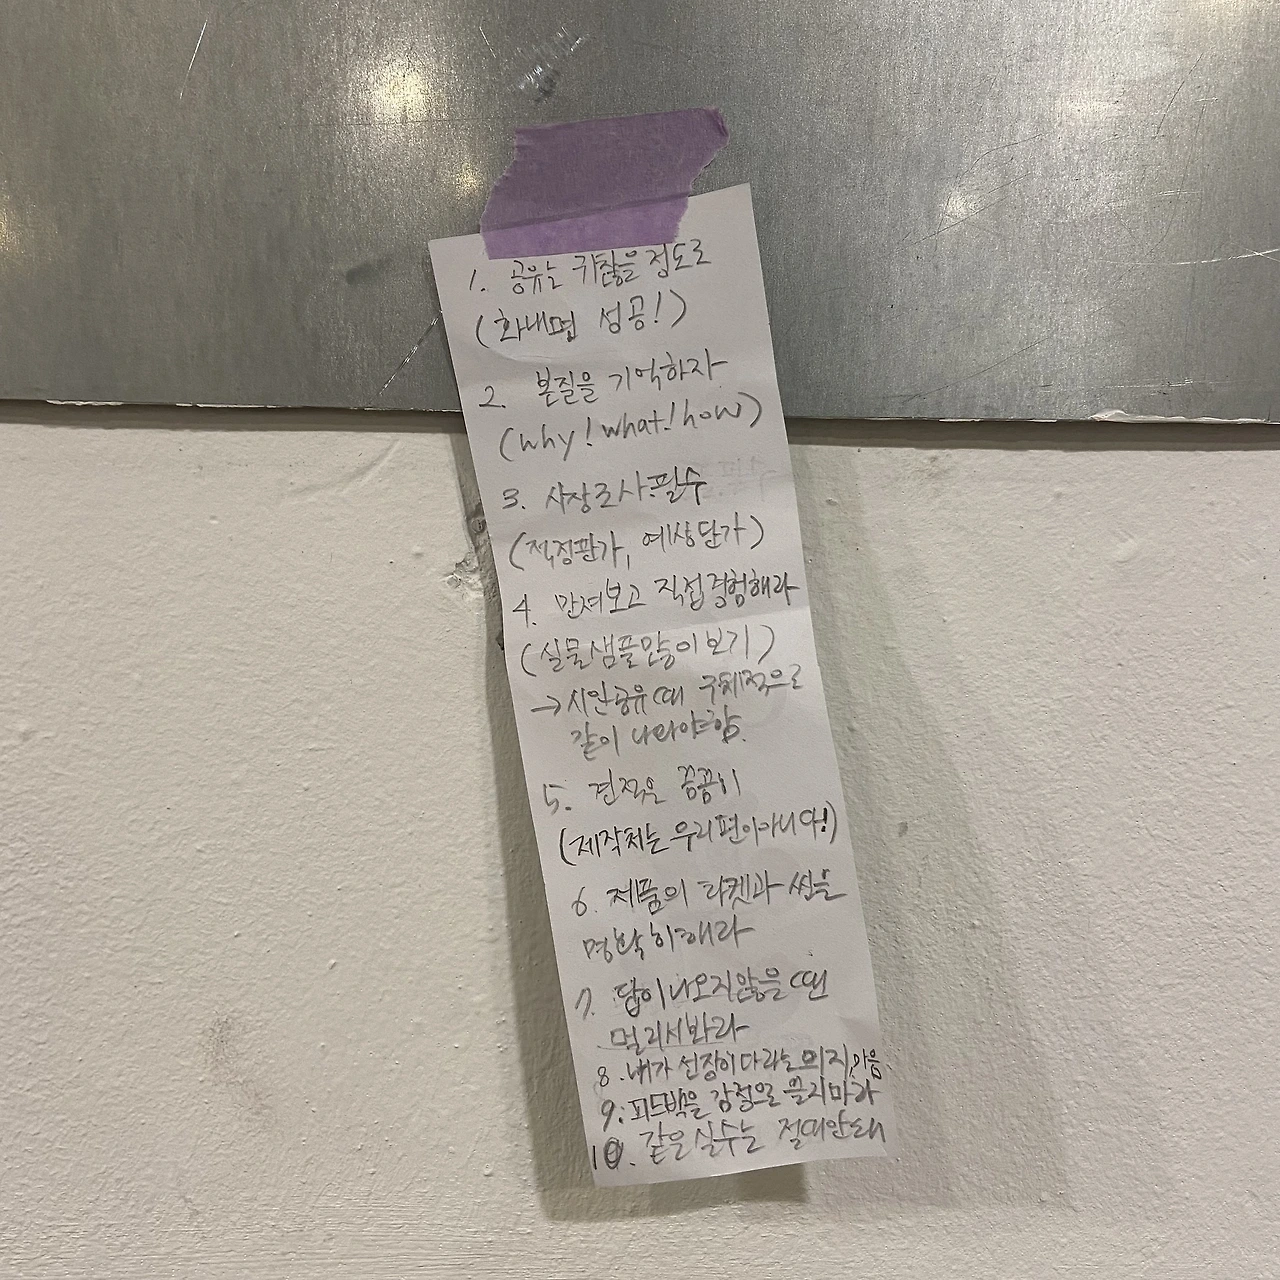 1. 공유는 귀찮을 정도로
(화내면 성공!)
2. 본질을 기억하자
(why! what! how)
3. 시장조사 필수
(적정판가, 예상단가)
4. 만져보고 직접경험해라
(실물샘플많이 보기)
→ 시안공유 때 구체적으로
같이 나와야함.
5. 견적은 꼼꼼히
(제작처는 우리편이아니야!)
6. 제품의 타켓과 씬을
명확히해라
7. 답이나오지않을 땐
멀리서봐라
8. 내가 선장이다라는 의지, 마음
9. 피드백을 감정으로 듣지마라
10. 같은실수는 절대안돼